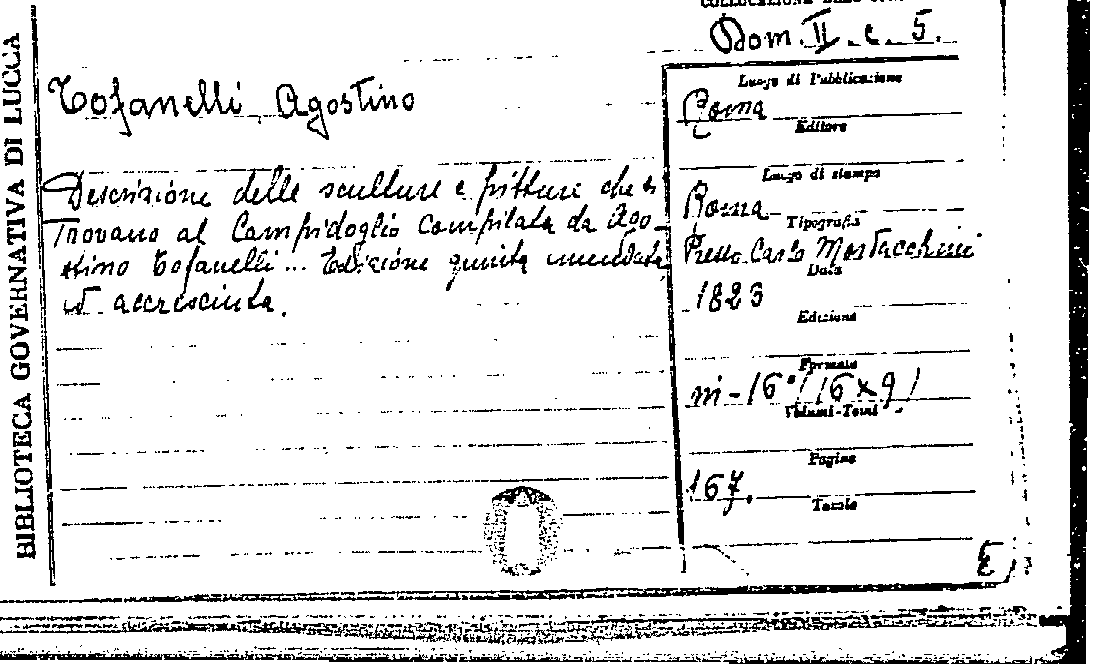 BIBLIOTECA GOVERNATIVA DI LUCCA
Dom. II. c. 5.
Tofanelli Agostino
Descrizione delle sculture e pitture che si
trovano al Campidoglio compilata da Ago-
stino Tofanelli... Edizione quinta emendata
ed accresciuta.
Luogo di Pubblicazione
Roma
Editore
Luogo di stampa
Roma
Tipografia
Presso Carlo Mordacchini
Data
1823
Edizione
Formato
in-16° (16x9)
Volumi-Tomi
Pagine
167.
Tavole
E